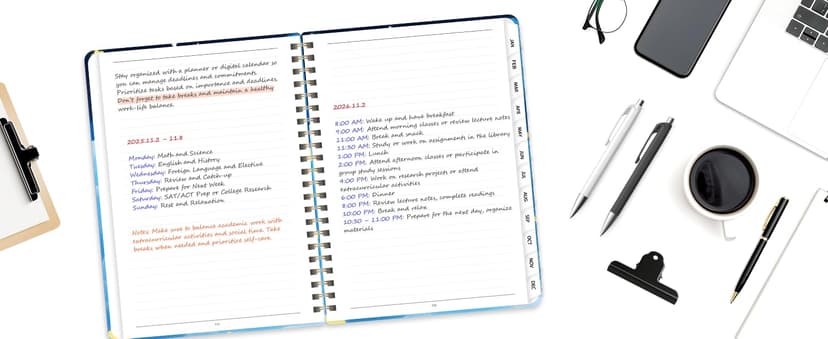 Stay organized with a planner or digital calendar so
you can manage deadlines and commitments.
Prioritize tasks based on importance and deadlines.
Don't forget to take breaks and maintain a healthy
work-life balance.
2025.11.2 - 11.8
Monday: Math and Science
Tuesday: English and History
Wednesday: Foreign Language and Elective
Thursday: Review and Catch-up
Friday: Prepare for Next Week
Saturday: SAT/ACT Prep or College Research
Sunday: Rest and Relaxation
Notes: Make sure to balance academic work with
extracurricular activities and social time. Take
breaks when needed and prioritize self-care.
2026.11.2
8:00 AM: Wake up and have breakfast
9:00 AM: Attend morning classes or review lecture notes
11:00 AM: Break and snack
11:30 AM: Study or work on assignments in the library
1:00 PM: Lunch
2:00 PM: Attend afternoon classes or participate in
group study sessions
4:00 PM: Work on research projects or attend
extracurricular activities
6:00 PM: Dinner
8:00 PM: Review lecture notes, complete readings
10:00 PM: Break and relax
10:30 - 11:00 PM: Prepare for the next day, organize
materials
JAN
FEB
MAR
APR
MAY
JUN
JUL
AUG
SEP
OCT
NOV
DEC